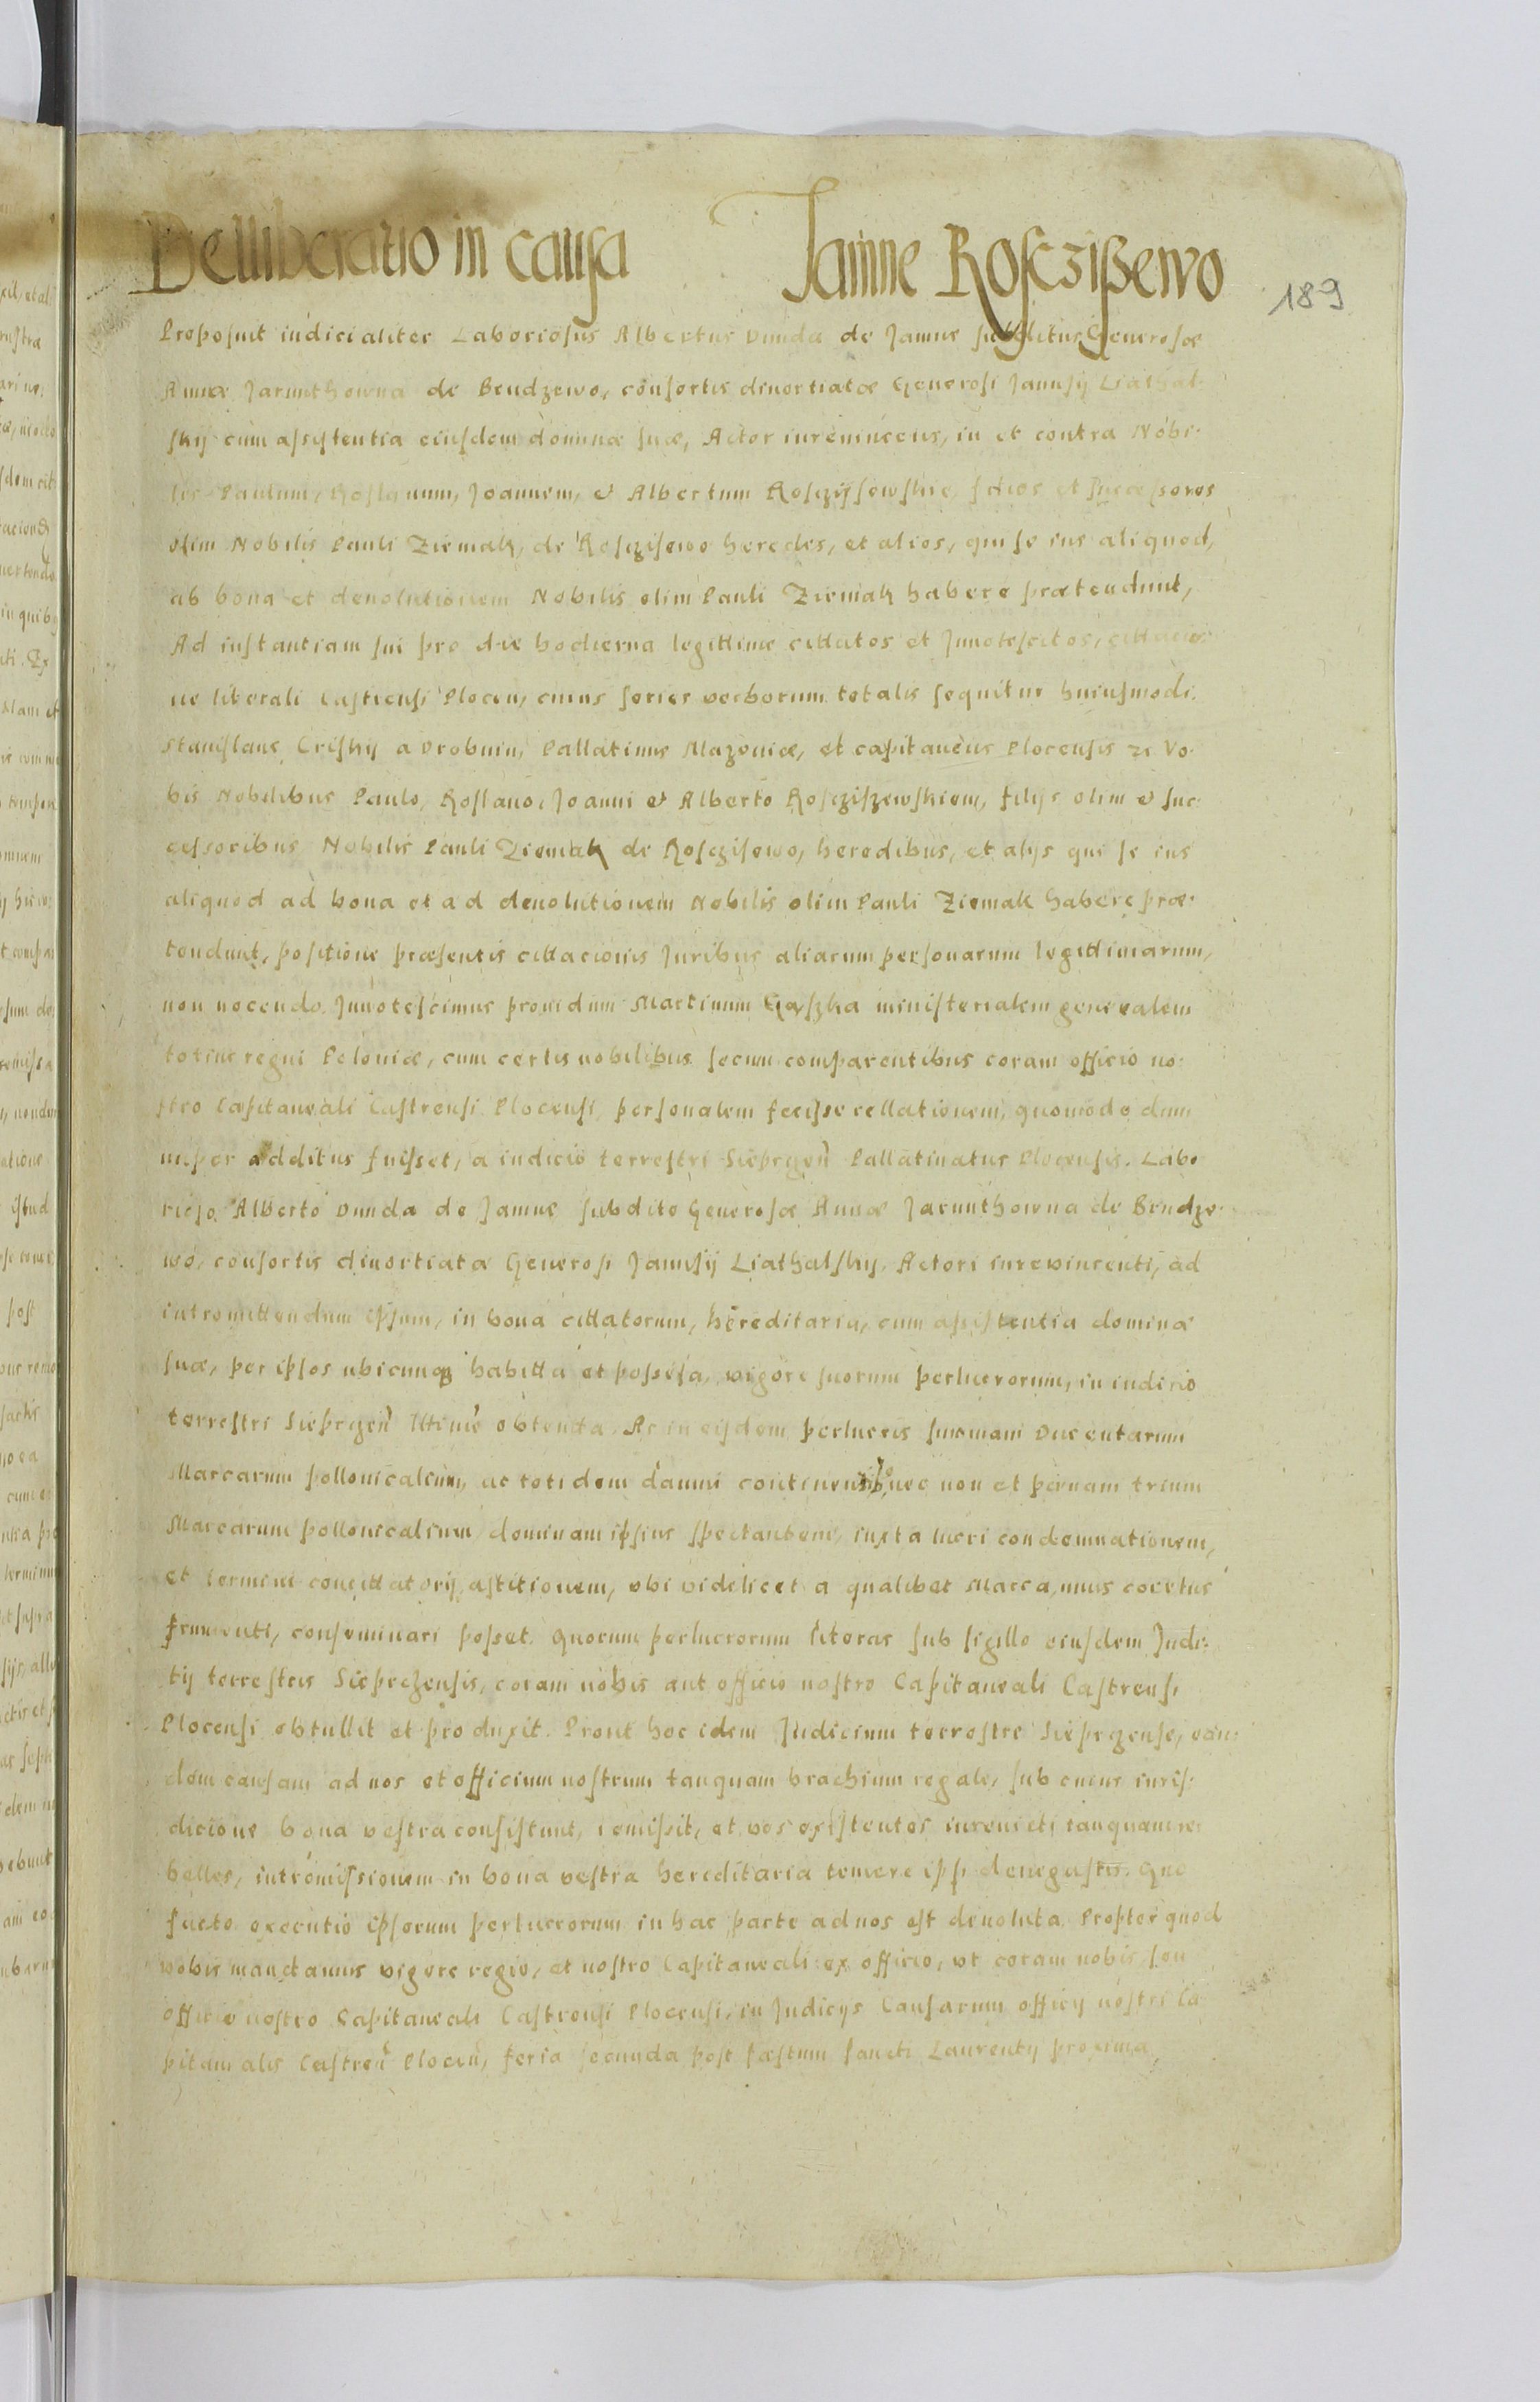 Delliberatio in causa Jamne Rosczißewo
189
Proposuit iudicialiter Laboriosus Albertus Dunda de Jamne subditus Generosæ
Annæ Jarunthowna de Bendzewo, consortis diuortiatæ Generosi Janusÿ Liathal-
skÿ cum assistentia eiusdem dominæ suæ, Actor iureuincens, in et contra Nobi-
les Paulum, Roslanum, Joannem, et Albertum Rosczÿsewskie, filios et successores
olim Nobilis Pauli Ziemak, de Rosczisewo heredes, et alios, qui se ius aliquod,
ab bona et deuolutionem Nobilis olim Pauli Ziemak habere prætendunt,
Ad instantiam sui pro die hodierna legittime cittatos et Jnnotescitos, cittacio-
ne literali Castrensi Plocen, cuius series verborum totalis sequitur huiusmodi.
Stanislaus Criskÿ a Drobnin, Pallatinus Mazouiæ, et capitaneus Plocensis zc Vo-
bis Nobilibus Paulo, Roslano, Joanni et Alberto Rosczißzewskiem, filÿs olim et suc-
cessoribus Nobilis Pauli Ziemak de Rosczisewo, heredibus, et alÿs qui se ius
aliquod ad bona et ad deuolutionem Nobilis olim Pauli Ziemak habere præ-
tendunt, positione præsentis cittacionis Juribus aliarum personarum legittimarum,
non nocendo. Jnnotescimus prouidum Martinum Gąszka ministerialem generalem
totius regni Poloniæ, cum certis nobilibus secum comparentibus coram officio no-
stro Capitaneali Castrensi Plocensi, personalem fecisse rellationem, quomodo dum
nuper additus fuisset, a iudicio terrestri Sieprczen Pallatinatus Plocensis. Labo
rioso Alberto Dunda de Jamne subdito Generosæ Annæ Jarunthowna de Bendze-
wo, consortis diuortiatæ Generosi Janusÿ Liathalskÿ, Actori iureuincenti, ad
intromittendum ipsum, in bona cittatorum, hereditaria, cum assistentia dominæ
suæ, per ipsos ubicunq habitta et possesa, vigore suorum perlucrorum, in iudicio
terrestri Sieprczen obtenta. Ac in eisdem perlucris summam Ducentarum
Marcarum pollonicalium, ac totidem damni nec non et pænam trium
Marcarum pollonicalium dominam ipsius spectantem, iuxta lucri condemnationem,
et termini concittatorÿ astitionem, vbi videlicet a qualibet Marca, unus coretus
frumenti, conseminari posset. Quorum perlucrorum literas sub sigillo eiusdem Judi-
tÿ terrestris Sieprczensis, coram nobis aut officio nostro Capitaneali Castrensi
Plocensi obtullit et produxit. Prout hoc idem Judicium terrestre Sieprczense, ean-
dem causam ad nos et officium nostrum tanquam brachium regale, sub cuius iuris-
dicione bona vestra consistunt, remissit, et vos existentes iureuicti tanquam re-
belles, intromissionem in bona vestra hereditaria temere ipsi denegastis. Quo
facto executio ipsorum perlucrorum in hac parte ad nos est deuoluta. Propter quod
vobis mandamus vigore regio, et nostro Capitaneali ex officio, vt coram nobis seu
officio nostro Capitaneali Castrensi Plocensi, in Judicÿs Causarum officÿ nostri Ca-
pitanealis Castren Plocen, feria secunda post fæstum sancti Laurentÿ proxima